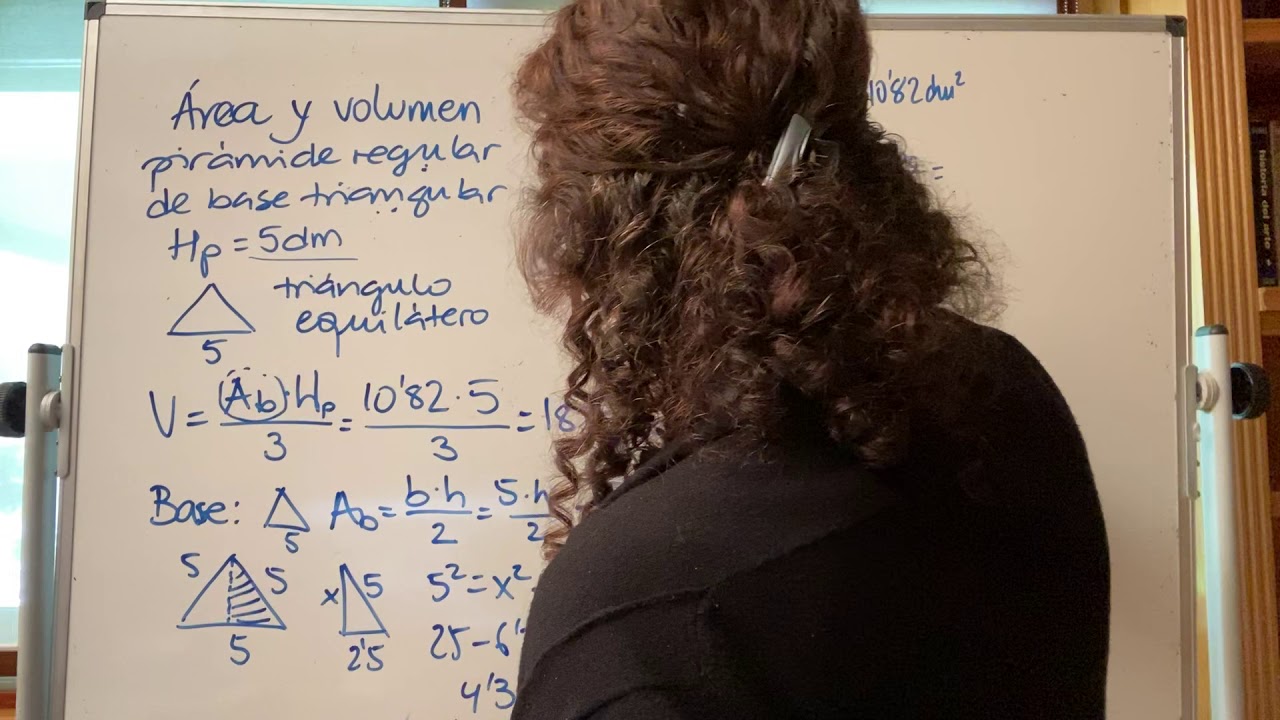 Área y volumen
pirámide regular
de base triangular
Hp = 5dm
triángulo
equilátero
5
V = (Ab)·Hp / 3 = 10'82·5 / 3 = 18
Base: 5 Ab = b·h / 2 = 5·h / 2
5 5 x 5 5² = x²
5 2'5 25 - 6'
4'3
10'82 dm²
=
historia del arte